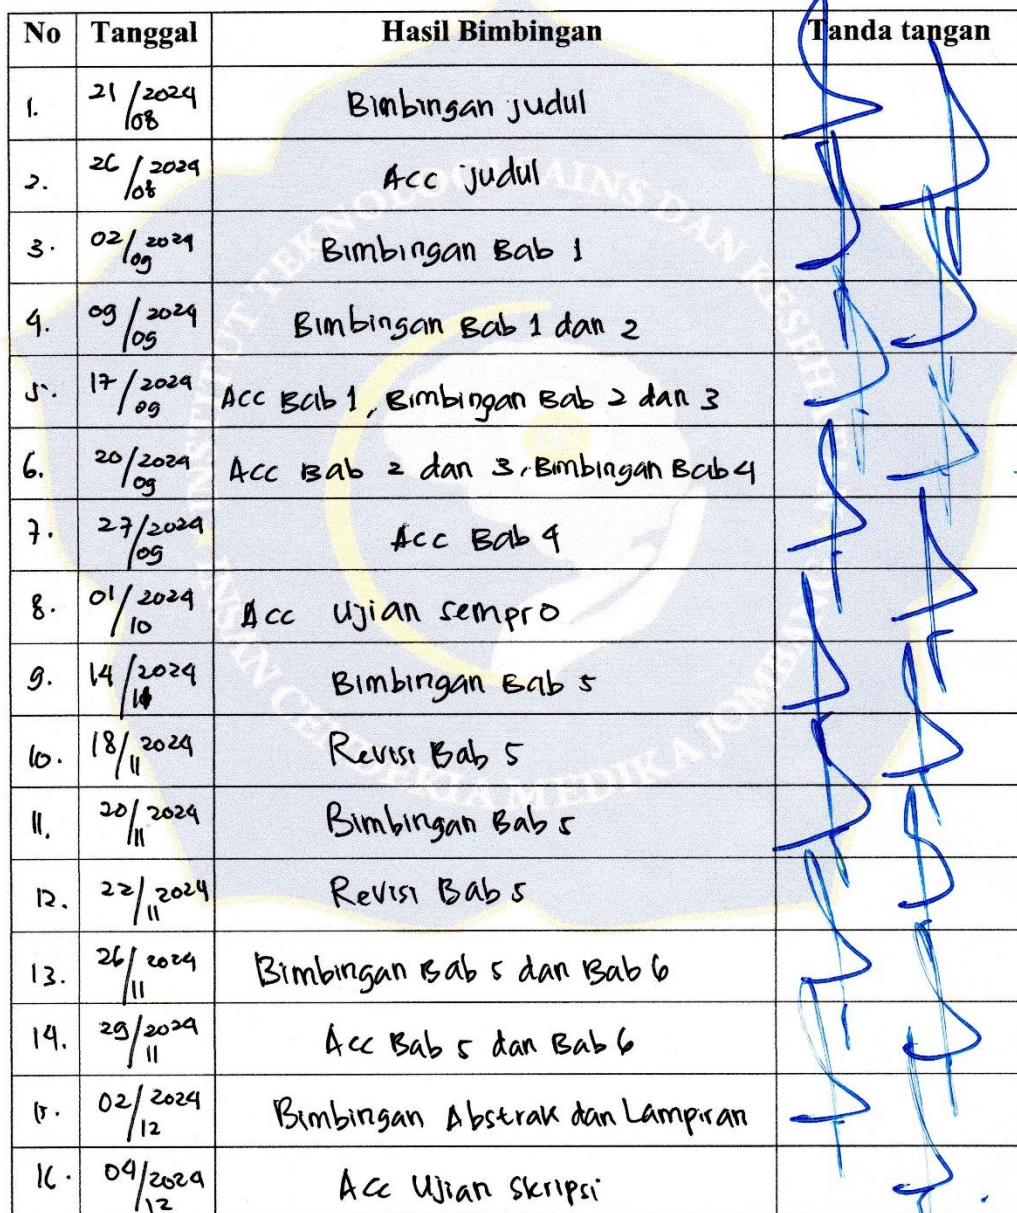 No Tanggal Hasil Bimbingan Tanda tangan
1. 21/2024 08 Bimbingan judul
2. 26/2024 08 Acc judul
3. 02/2024 09 Bimbingan Bab 1
4. 09/2024 09 Bimbingan Bab 1 dan 2
5. 17/2024 09 Acc Bab 1, Bimbingan Bab 2 dan 3
6. 20/2024 09 Acc Bab 2 dan 3, Bimbingan Bab 4
7. 27/2024 09 Acc Bab 4
8. 01/2024 10 Acc Ujian sempro
9. 14/2024 Bimbingan Bab 5
10. 18/2024 11 Revisi Bab 5
11. 20/2024 11 Bimbingan Bab 5
12. 22/2024 11 Revisi Bab 5
13. 26/2024 11 Bimbingan Bab 5 dan Bab 6
14. 29/2024 11 Acc Bab 5 dan Bab 6
15. 02/2024 12 Bimbingan Abstrak dan Lampiran
16. 04/2024 12 Acc Ujian Skripsi
INSTITUT TEKNOLOGI SAINS DAN KESEHATAN
INSAN CENDEKIA MEDIKA JOMBANG